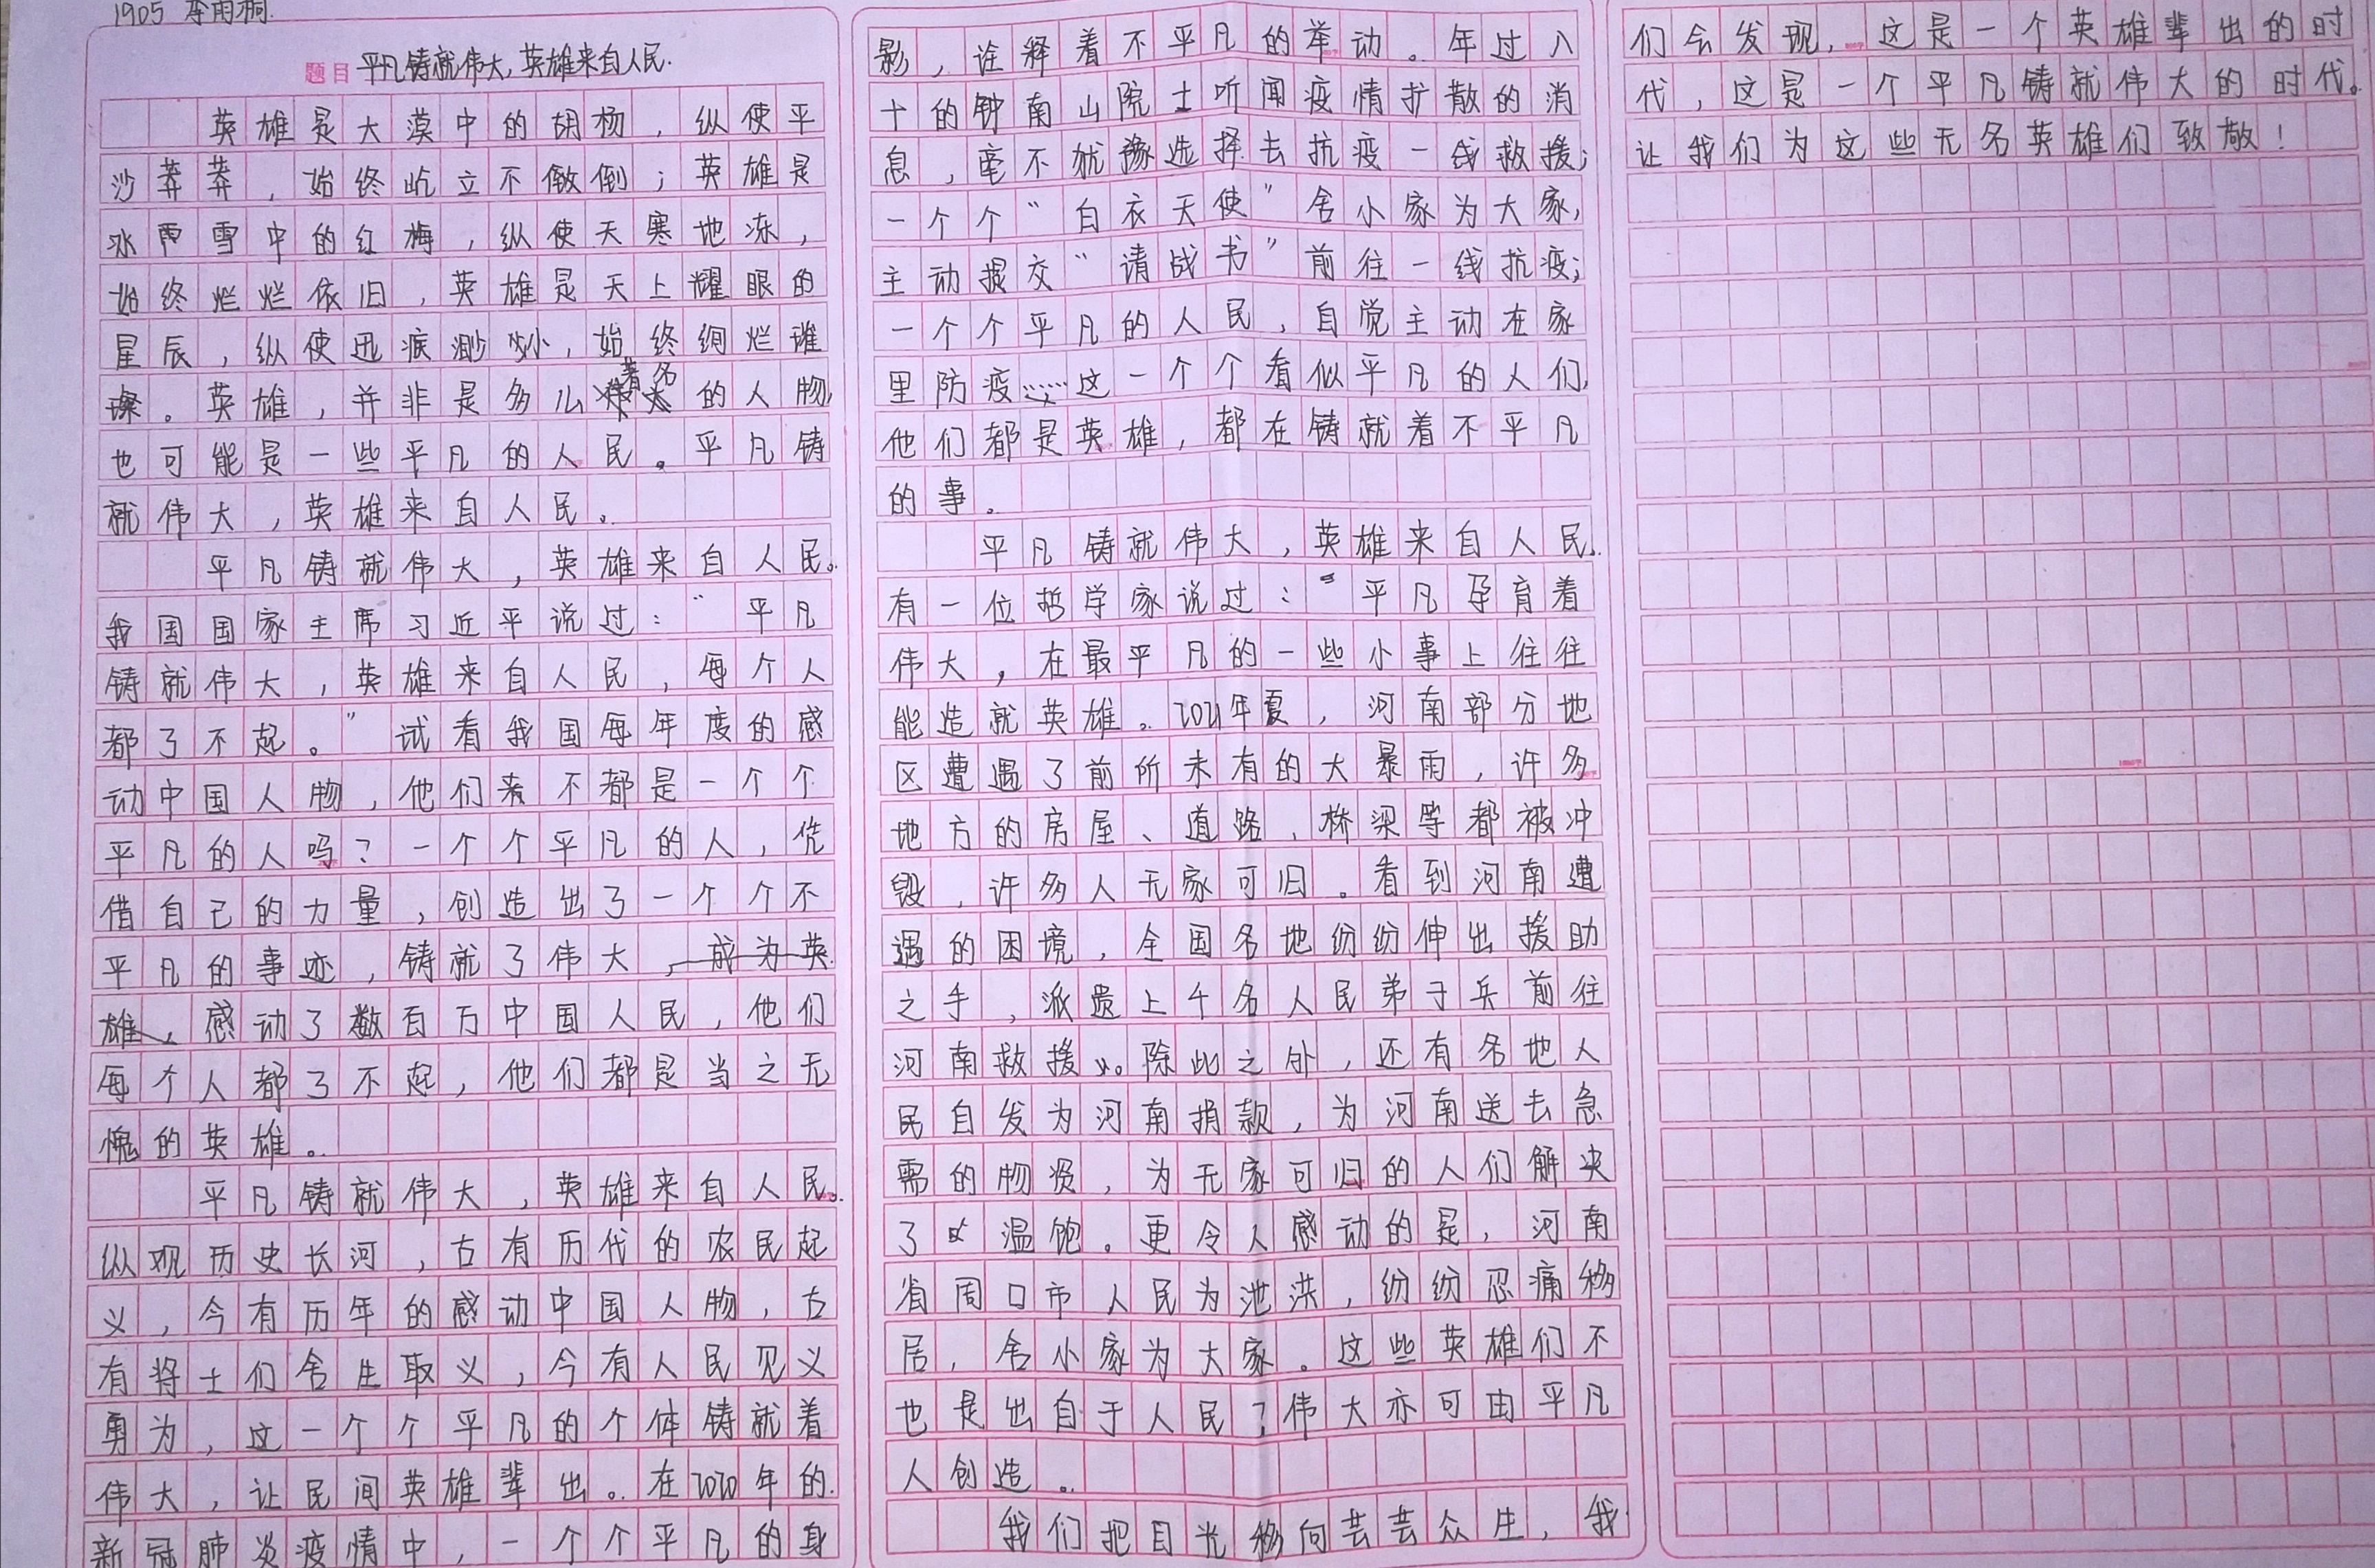 1905 李雨桐
题目 平凡铸就伟大,英雄来自人民.
英雄是大漠中的胡杨，纵使平
沙莽莽，始终屹立不倒；英雄是
冰雨雪中的红梅，纵使天寒地冻，
始终烂烂依旧，英雄是天上耀眼的
星辰，纵使迅疾渺小，始终绚烂
璨。英雄，并非是多么著名的人物，
也可能是一些平凡的人民。平凡铸
就伟大，英雄来自人民。
平凡铸就伟大，英雄来自人民。
我国国家主席习近平说过：“平凡
铸就伟大，英雄来自人民，每个人
都了不起。”试看我国每年度的感
动中国人物，他们不都是一个个
平凡的人吗？一个个平凡的人，凭
借自己的力量，创造出了一个个不
平凡的事迹，铸就了伟大，成为英
雄、感动了数百万中国人民，他们
每个人都了不起，他们都是当之无
愧的英雄。
平凡铸就伟大，英雄来自人民。
纵观历史长河，古有历代的农民起
义，今有历年的感动中国人物，古
有将士们舍生取义，今有人民见义
勇为，这一个个平凡的个体铸就着
伟大，让民间英雄辈出。在2020年的
新冠肺炎疫情中，一个个平凡的身
影，诠释着不平凡的举动。年过八
十的钟南山院士听闻疫情扩散的消
息，毫不犹豫选择去抗疫一线救援；
一个个“白衣天使”舍小家为大家，
主动提交“请战书”前往一线抗疫；
一个个平凡的人民，自觉主动在家
里防疫……这一个个看似平凡的人们，
他们都是英雄，都在铸就着不平凡
的事。
平凡铸就伟大，英雄来自人民。
有一位哲学家说过：“平凡孕育着
伟大，在最平凡的一些小事上往往
能造就英雄。2021年夏，河南部分地
区遭遇了前所未有的大暴雨，许多
地方的房屋、道路、桥梁等都被冲
毁，许多人无家可归。看到河南遭
遇的困境，全国各地纷纷伸出援助
之手，派遣上千名人民弟子兵前往
河南救援。除此之外，还有各地人
民自发为河南捐款，为河南送去急
需的物资，为无家可归的人们解决
了温饱。更令人感动的是，河南
省周口市人民为泄洪，纷纷忍痛移
居，舍小家为大家。这些英雄们不
也是出自于人民？伟大亦可由平凡
人创造。
我们把目光移向芸芸众生，我
们会发现，这是一个英雄辈出的时
代，这是一个平凡铸就伟大的时代。
让我们为这些无名英雄们致敬！